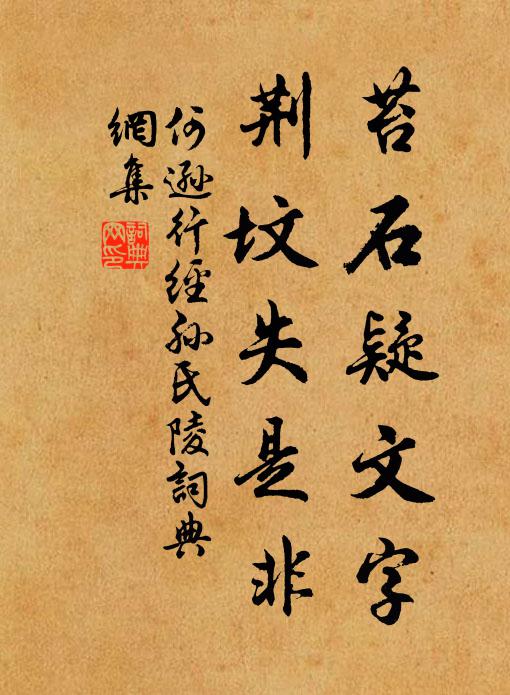 苔石疑文字
荆坟失是非
何遜行經孫氏陵詞典
網集
詞典網印